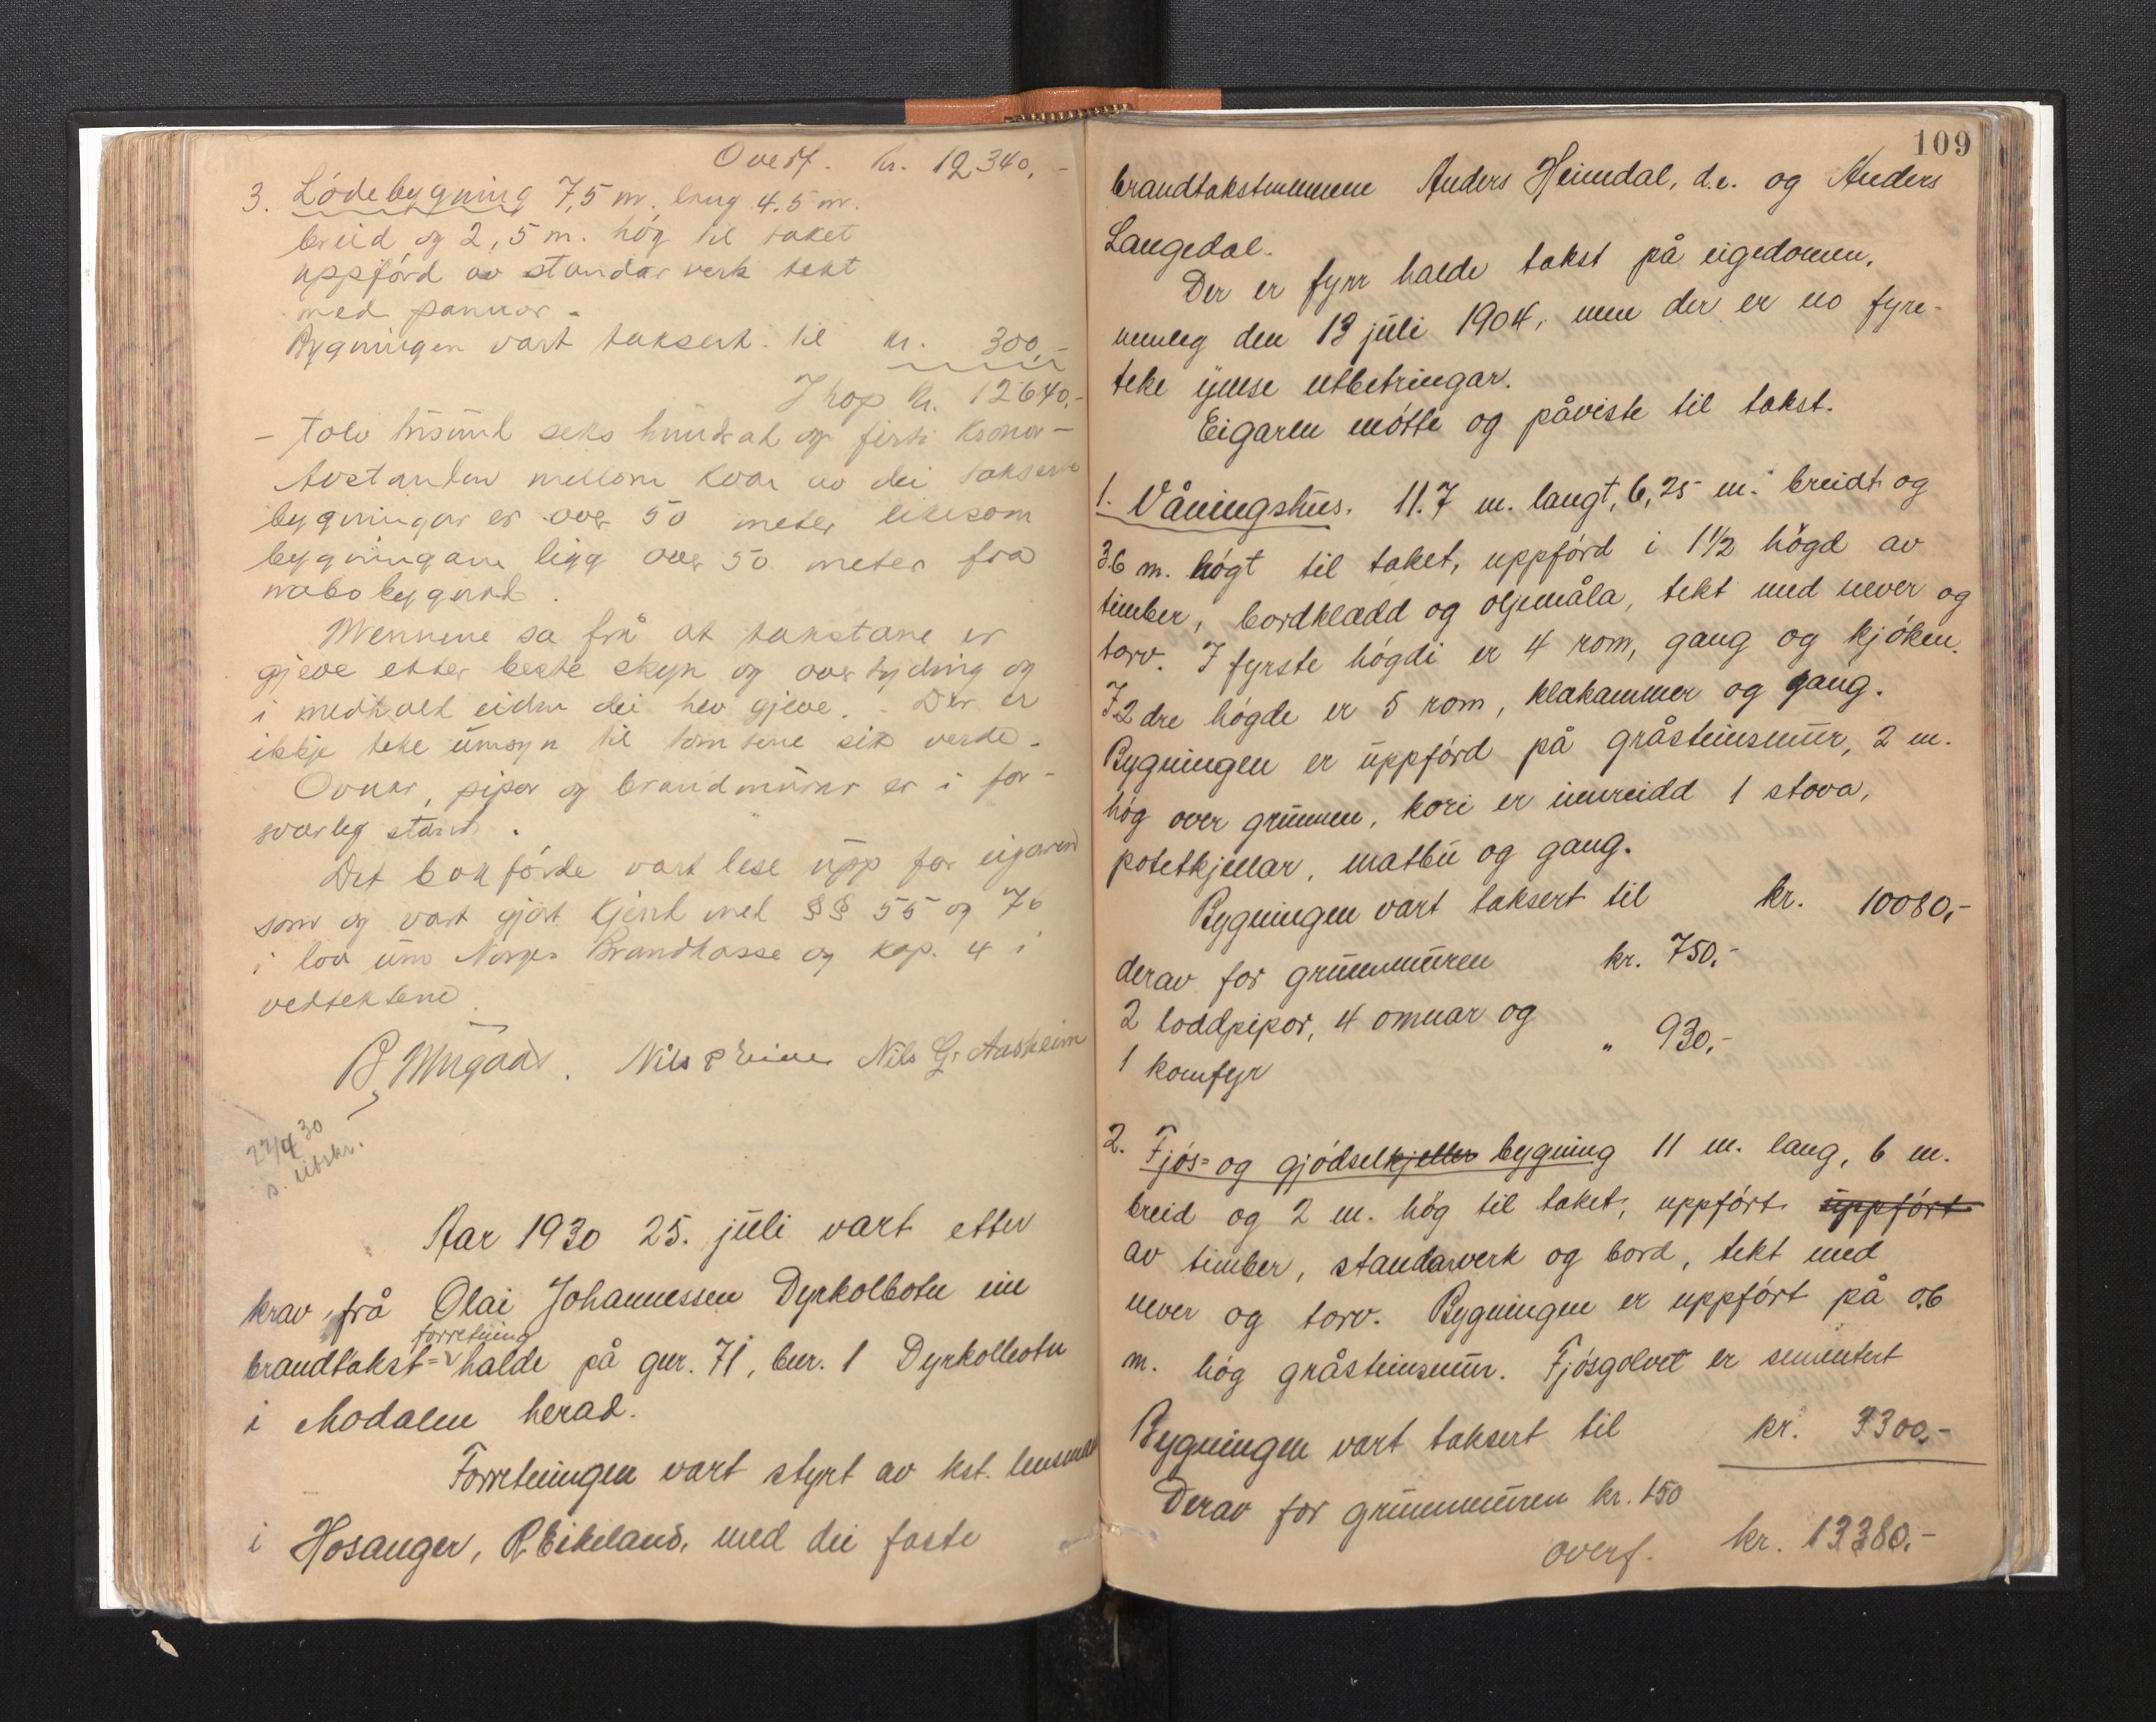 Overf. kr. 12340,-
3. Lödebygning 7,5 m. lang 4.5 m.
breid og 2,5 m. hög til taket
uppförd av standarverk tekt
med pannor.
Bygningen vart taksert til kr. 300,-
I hop kr. 12640,-
- Tolv tusund seks hundrad og firti kronor -
Avstanden mellom kvar av dei takserte
bygningar er over 50 meter likesom
bygningane ligg over 50 meter fra
nabobygnad.
Mennene sa frå at takstane er
gjeve etter beste skyn og overtyding og
i medhald eiden dei hev gjeve. - Der er
ikkje teke ümsyn til tomtene sit verde.
Ovnar, pipor og brandmürar er i for-
svarleg stand.
Det bokförde vart lese üpp for eigaren
som og vart gjort kjend med §§ 55 og 70
i lov üm Norges Brandkasse og kap. 4 i
vedtektene.
Nils G. Aasheim
22/4 30
s. utskr.
Aar 1930 25. jüli vart etter
krav frå Olai Johannessen Dyrkolbotn ein
forretning
brandtakst= halde på gnr. 71, bnr. 1 Dyrkolbotn
i Modalen herad.
Forretningen vart styrt av kst. lensmann
i Hosanger, R. Eikeland, med dei faste
109
brandtakstmennene Anders Heimdal, d.e. og Anders
Langedal.
Der er fyrr halde takst på eigedomen,
nemleg den 13 jüli 1904, men der er no fyre-
teke ymse utbetringar.
Eigaren mötte og påviste til takst.
1. Våningshüs. 11.7 m. langt, 6,25 m. breidt og
3.6 m. högt til taket, uppförd i 1 1/2 högd av
timber, bordklædd og oljemåla, tekt med never og
torv. I fyrste högdi er 4 rom, gang og kjöken.
I 2dre högde er 5 rom, klækammer og gang.
Bygningen er üppförd på gråsteinsmür, 2 m.
hög over grünnen, kori er innreidd 1 stova,
potetkjellar, matbü og gang.
Bygningen vart taksert til kr. 10080,-
derav for grünnmüren kr. 750,-
2 loddpipor, 4 omnar og
1 komfyr " 930,-
2. Fjös= og gjödselkjeller bygning 11 m. lang, 6 m.
breid og 2 m. hög til taket, uppfört uppfört
av timber, standarverk og bord, tekt med
never og torv. Bygningen er uppfört på 0,6
m. hög gråsteinsmür. Fjösgolvet er sementert
Bygningen vart taksert til kr. 3300,-
Derav for grünnmüren kr. 150
overf. kr. 13380,-